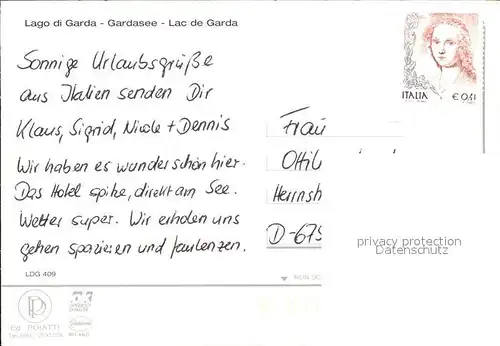 Lago di Garda - Gardasee - Lac de Garda
Sonnige Urlaubsgrüße
aus Italien senden Dir
Klaus, Sigrid, Nicole + Dennis
Wir haben es wunderschön hier.
Das Hotel spitze, direkt am See.
Wetter super. Wir erholen uns
gehen spazieren und faulenzen.
LDG 409
ITALIA € 0,41
Frau
Ottil
Herrnsh
D-675
privacy protection
Datenschutz